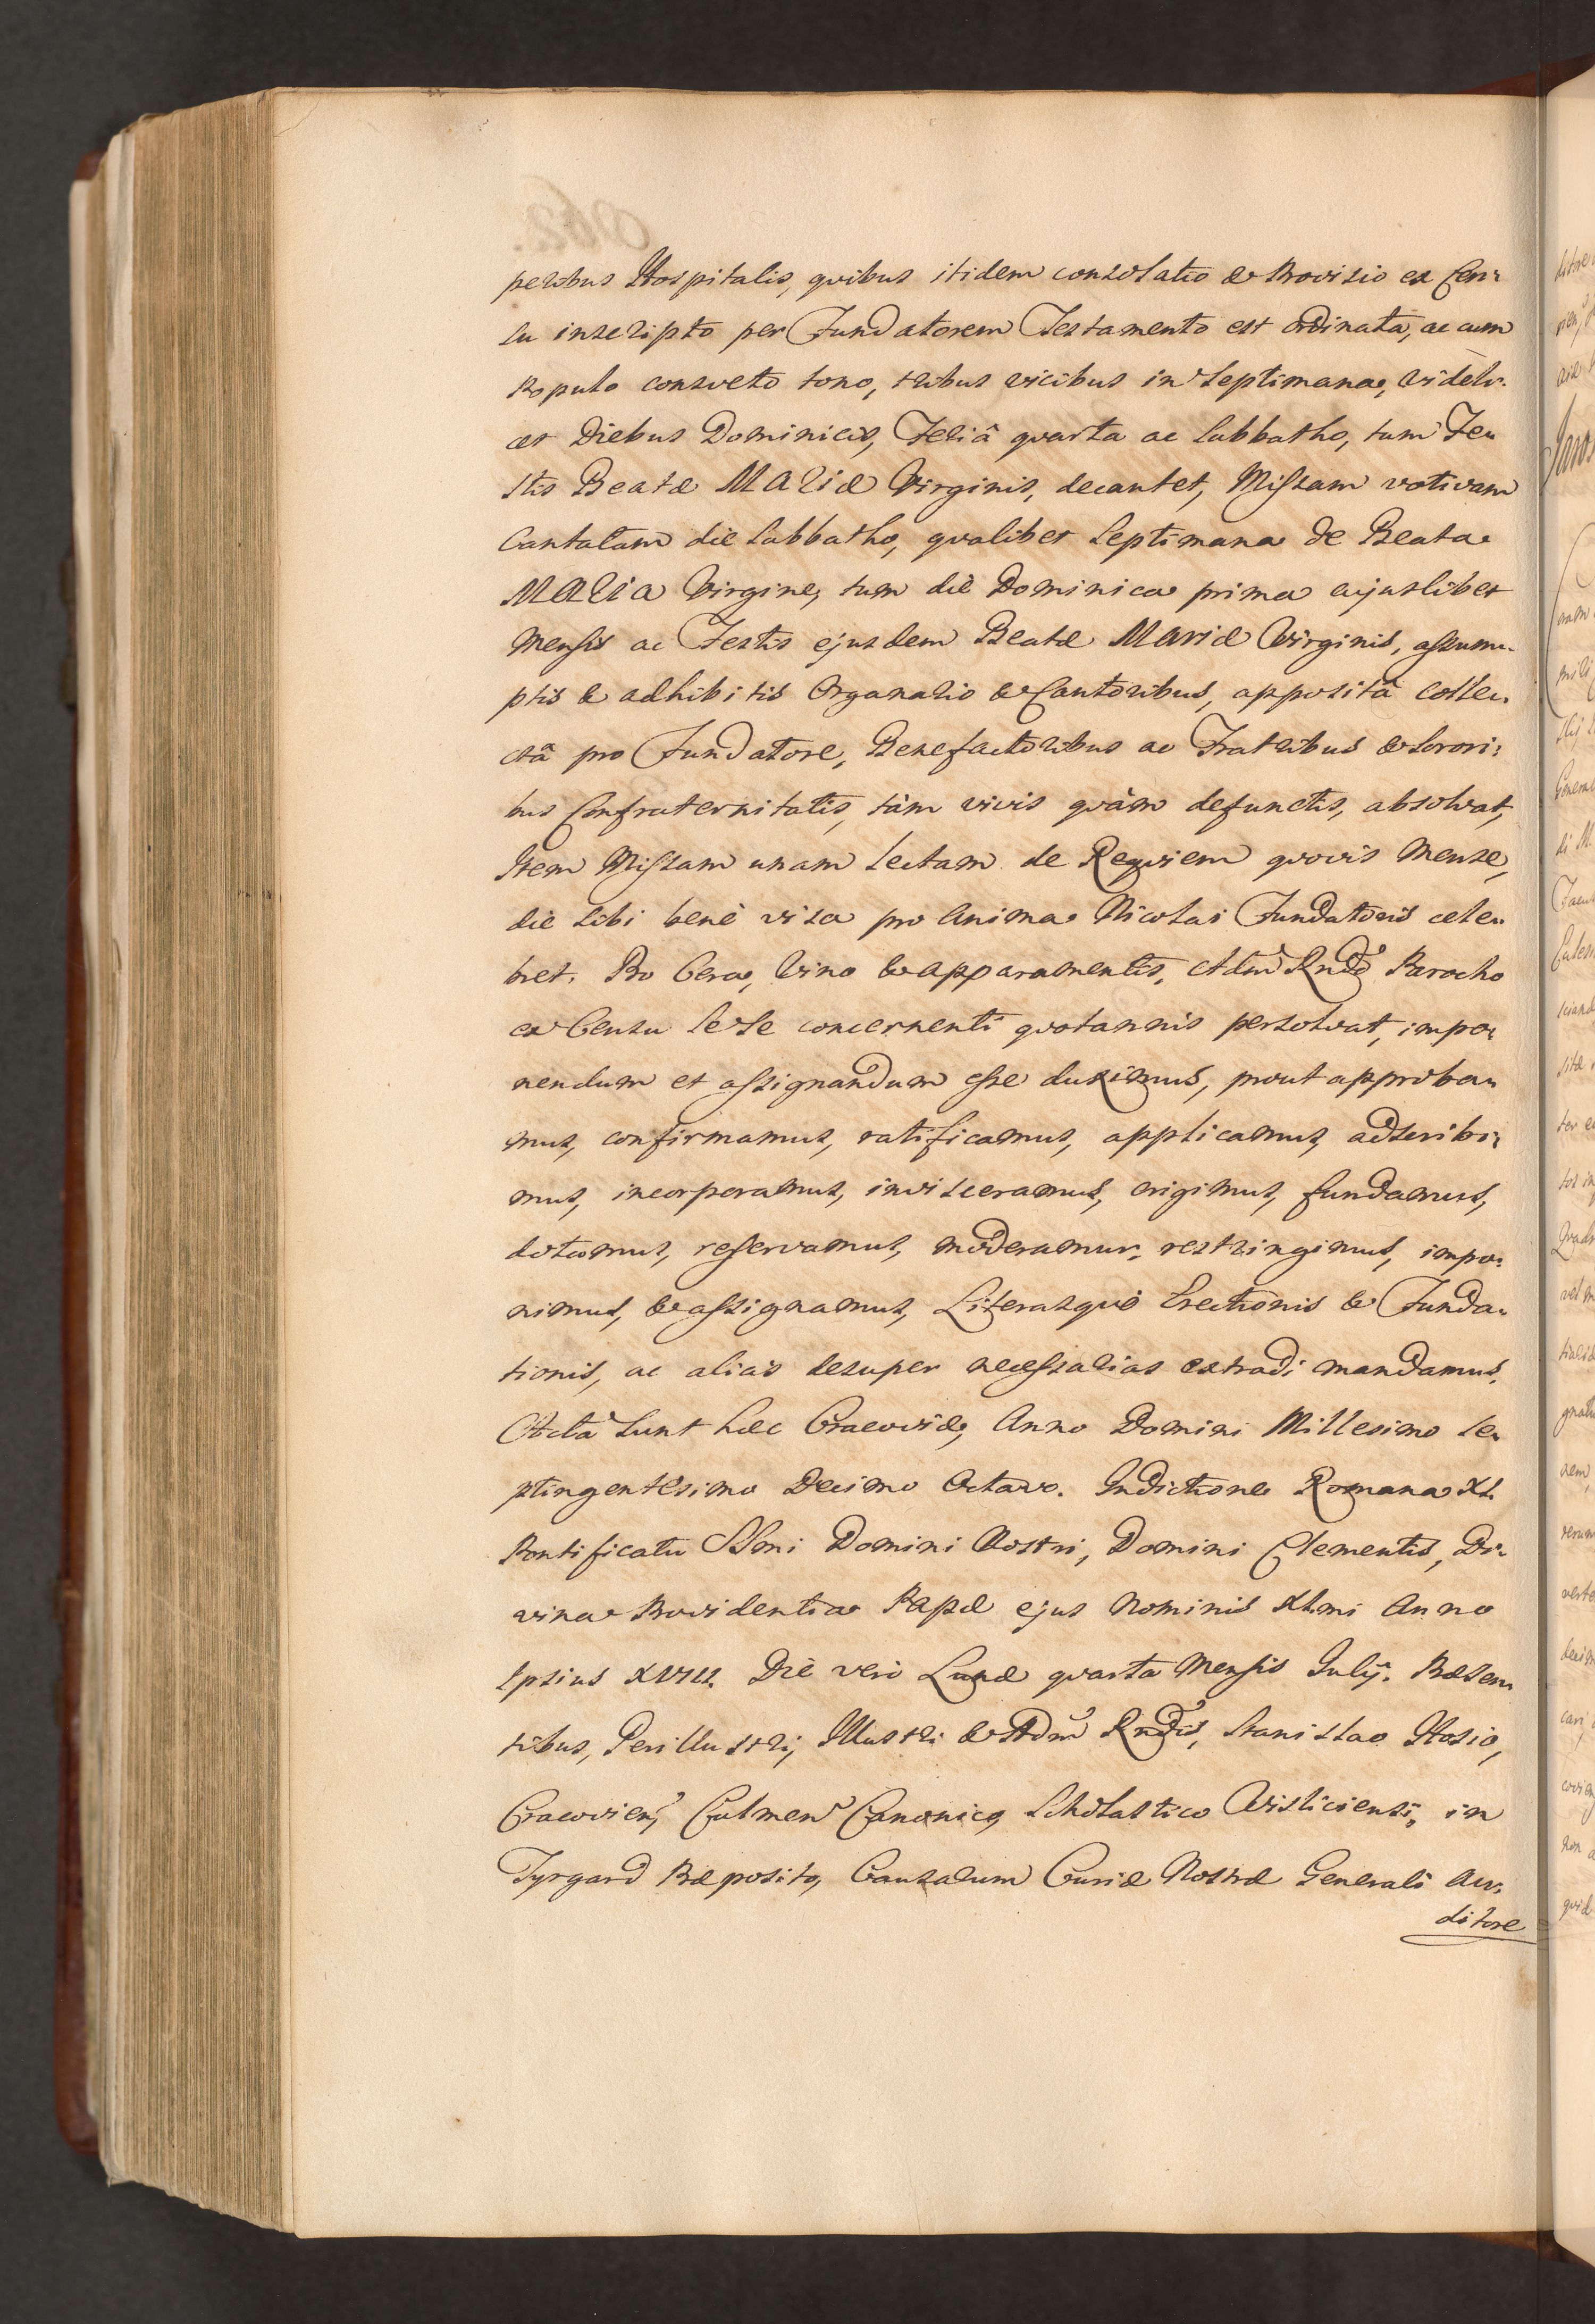 peribus Hospitalis, quibus itidem consolatio & Provisio ex Cen:
su inscripto per Fundatorem Testamento est ordinata, ac cum
Populo consveto tono, tribus vicibus in Septimana, videli:
cet Diebus Dominicis, Feriâ quarta ac Sabbatho, tum Fe:
stis Beatæ MARIÆ Virginis, decantet, Missam votivam
Cantatam die Sabbatho, qualibet Septimana de Beata
MARIA Virgine, tum die Dominica prima cujuslibet
Mensis ac Festis ejusdem Beatæ MARIÆ Virginis, assum:
ptis & adhibitis Organario & Cantoribus, appositâ Colle:
ctâ pro Fundatore, Benefactoribus ac Fratribus & Sorori:
bus Confraternitatis, tàm vivis quàm defunctis, absolvat,
Item Missam unam lectam de Requiem quovis Mense,
die sibi benè visa pro Anima Nicolai Fundatoris cele:
bret. Pro Cera, Vino & apparamentis, Adm Rndo Parocho
ex Censu se se concernenti quotannis persolvat, impo:
nendum et assignandum esse duximus, prout approba:
mus, confirmamus, ratificamus, applicamus, adscribi:
mus, incorporamus, invisceramus, erigimus, fundamus,
dotamus, reservamus, moderamur, restringimus, impo:
nimus, & assignamus, Literasque Erectionis & Funda:
tionis, ac alias desuper necessarias extradi mandamus.
Acta sunt hæc Cracoviæ, Anno Domini Millesimo Se:
ptingentesimo Decimo Octavo. Indictione Romana XI.
Pontificatu SSmi Domini Nostri, Domini Clementis, Di:
vina Providentia Papæ ejus Nominis XI.mi Anno
Ipsius XVIII. Die vero Lunæ quarta Mensis Julij. Præsen:
tibus, Perillustri, Illustri & Adm Rndis, Stanislao Hosio,
Cracovien, Culmen Canonico, Scholastico Visliciensi, in
Tyrgard Præposito, Causarum Curiæ Nostræ Generali Au:
ditore